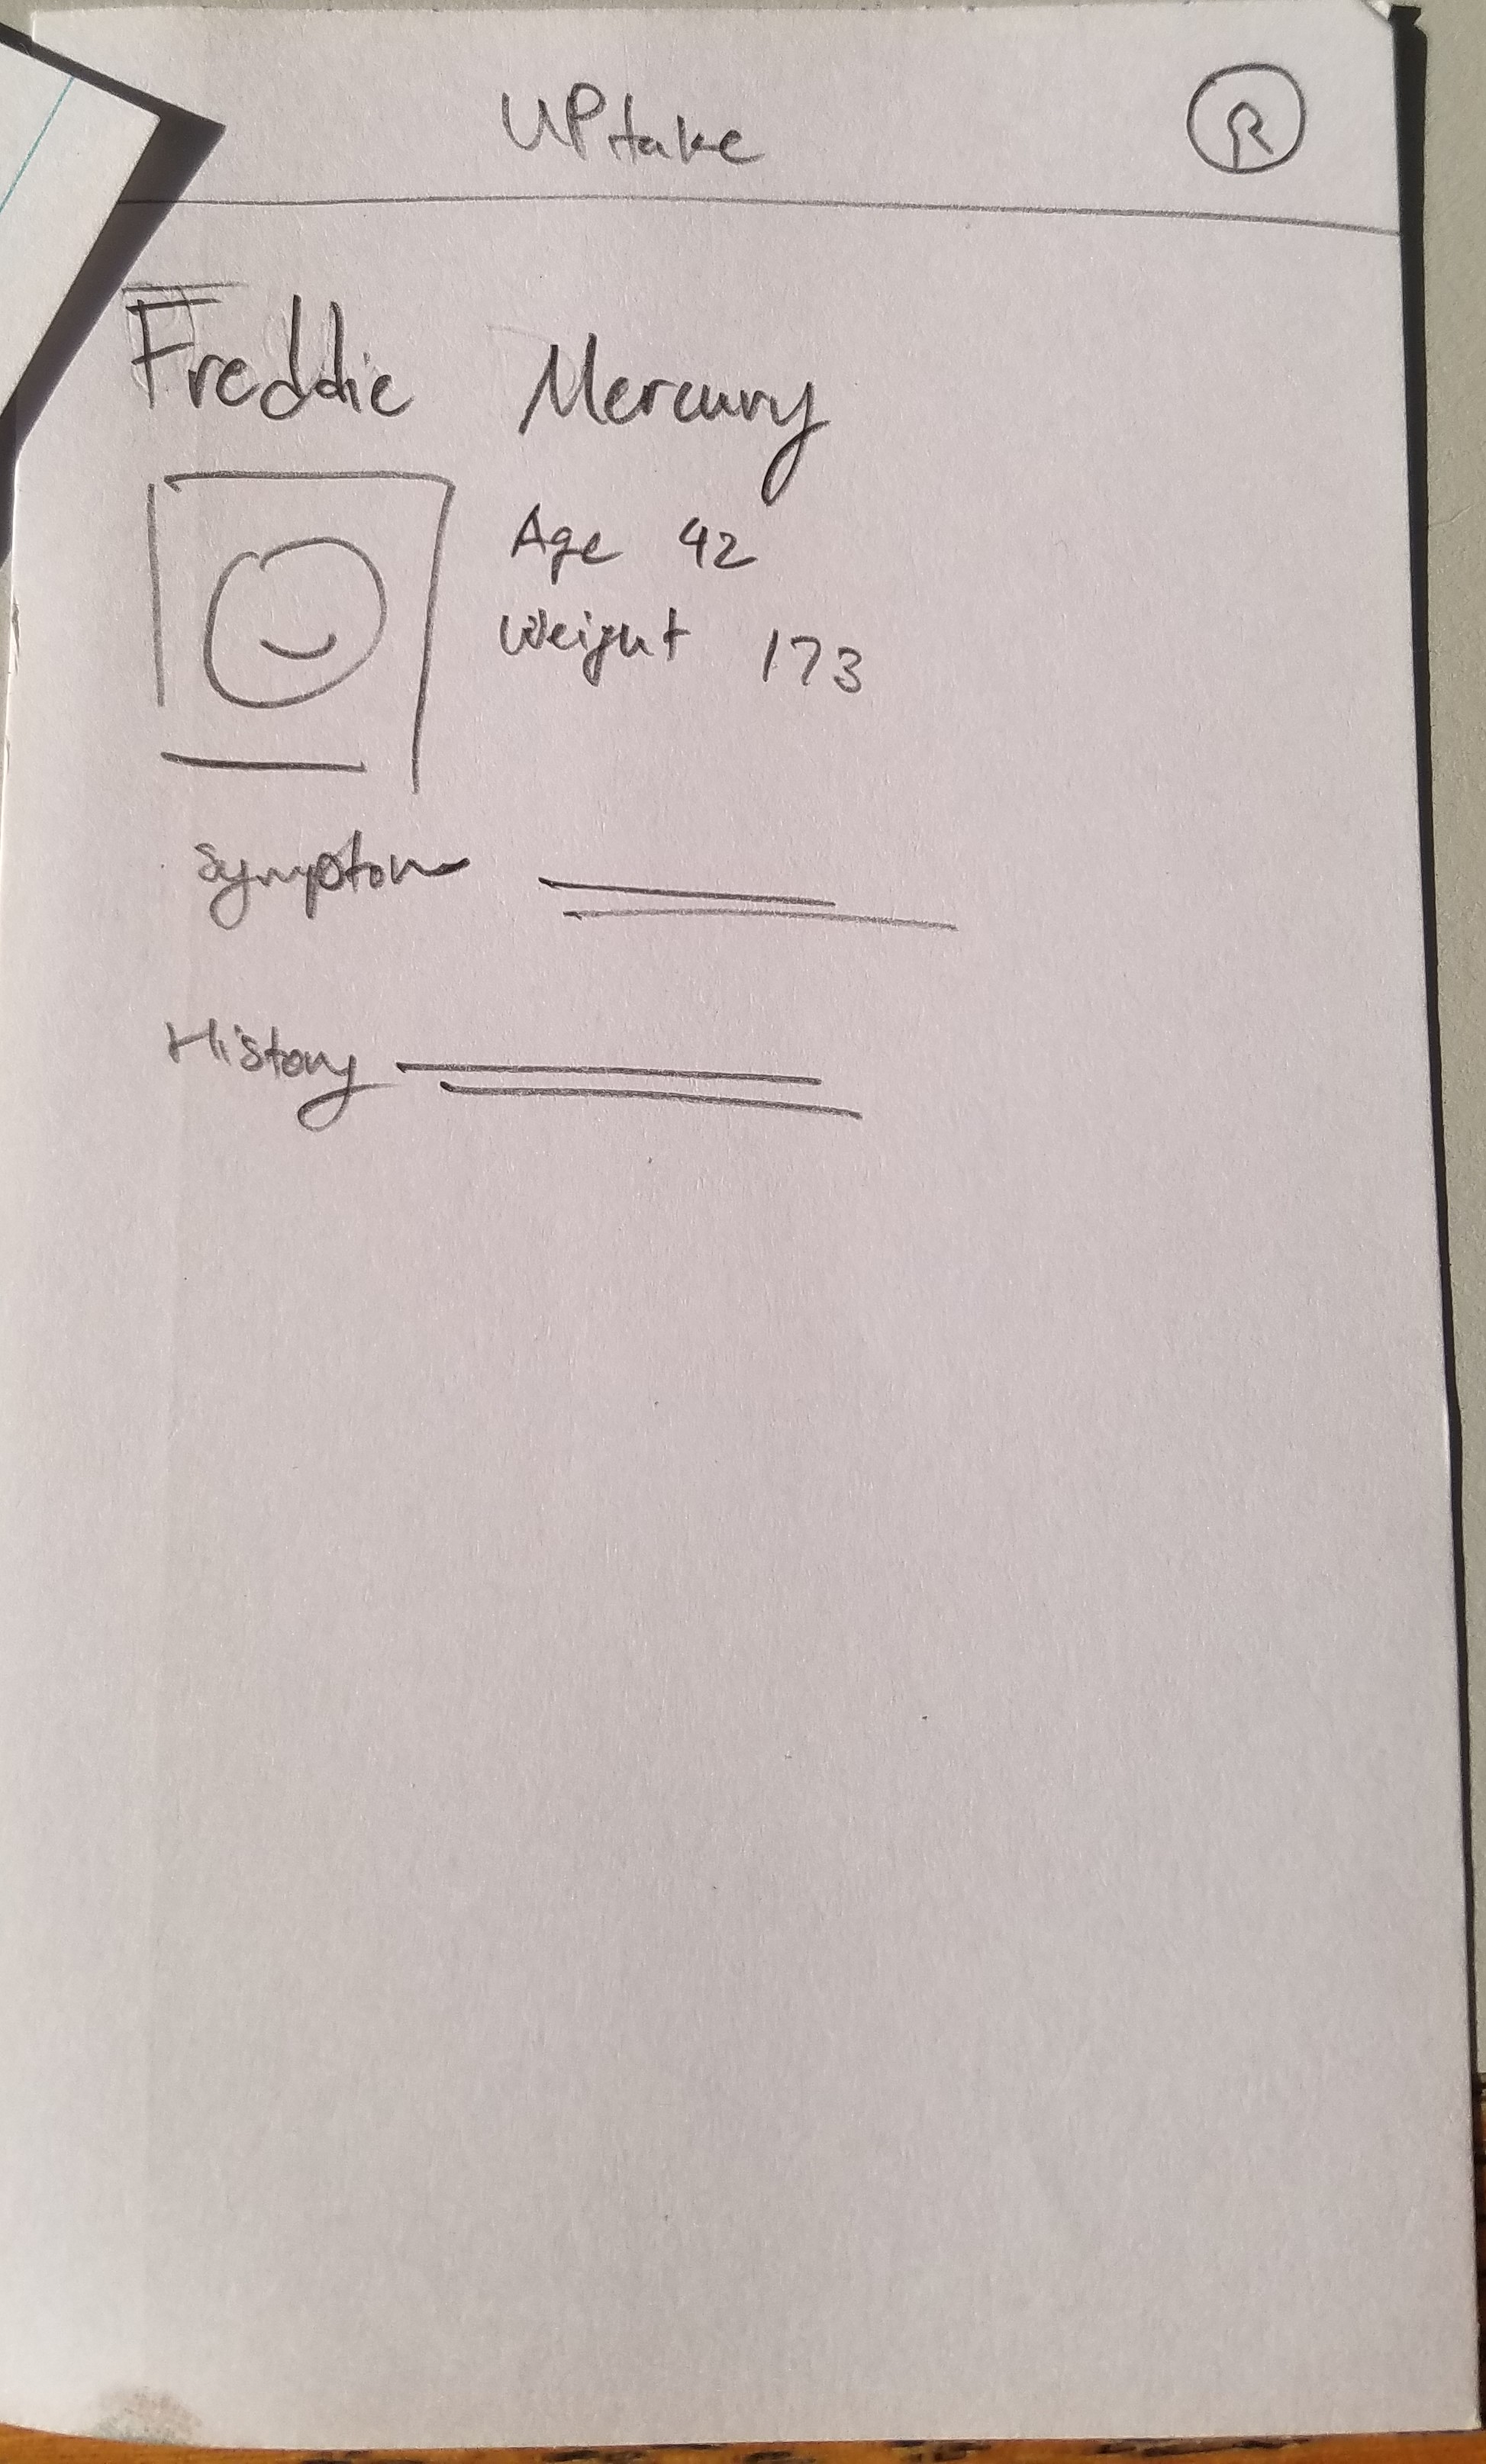 UPtake
R
Freddie Mercury
Age 42
Weight 173
Symptom
History